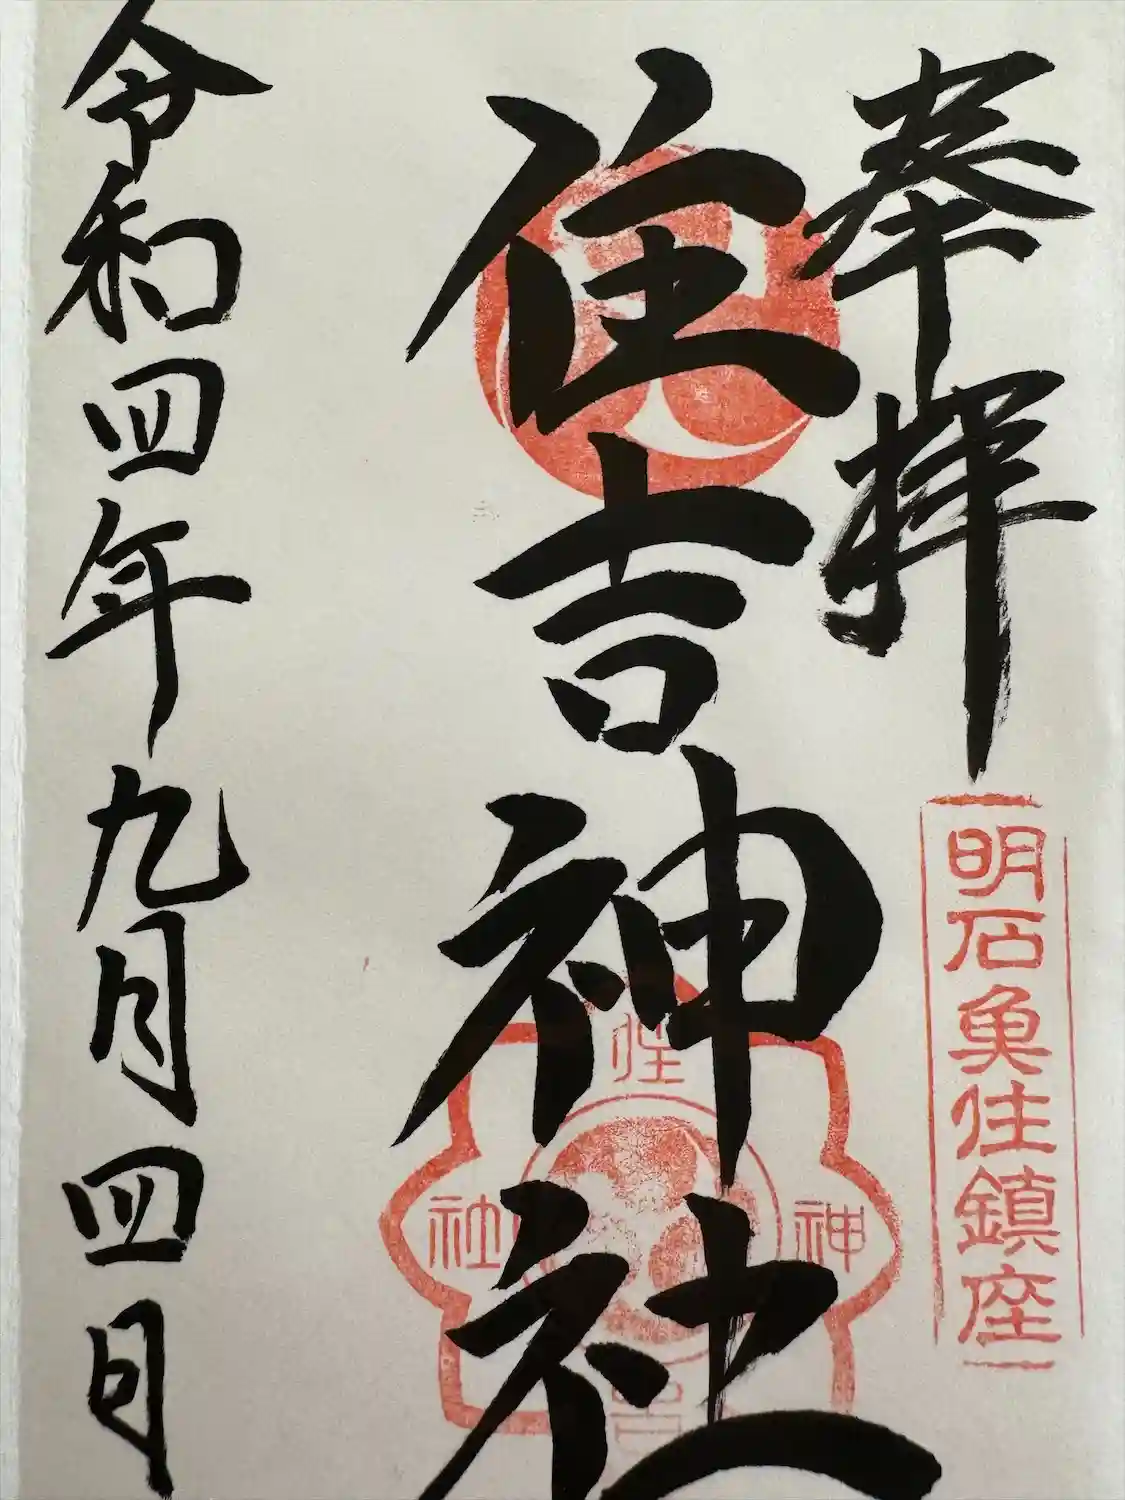 奉拝
明石魚住鎮座
住吉神社
住吉神社
令和四年九月四日